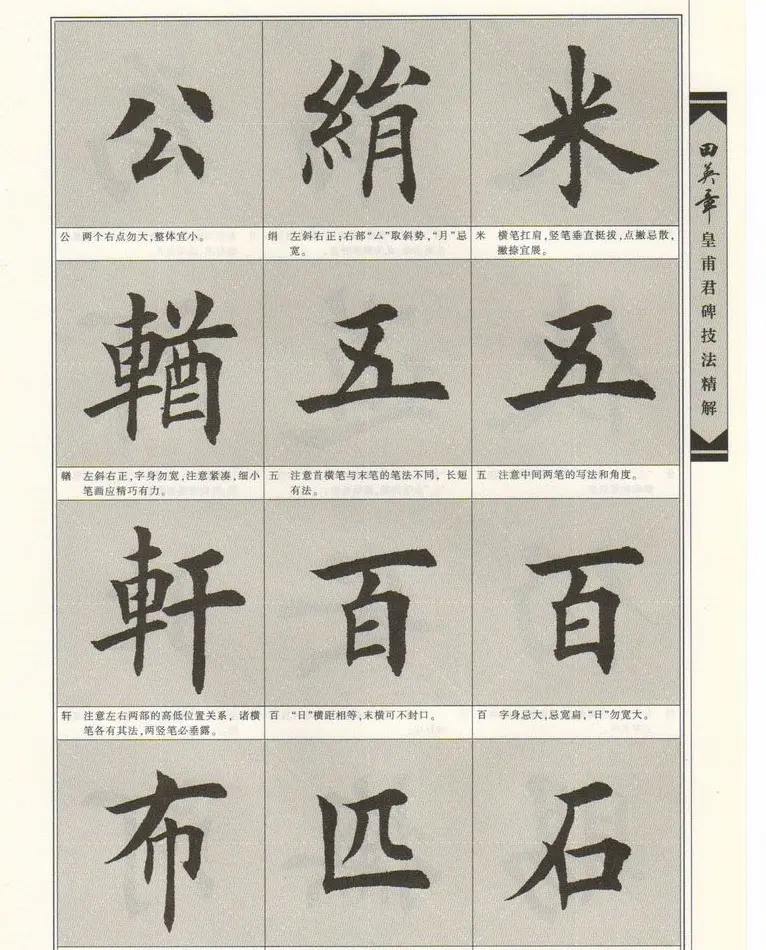 公
絹
米
公 两个右点勿大,整体宜小。
绢 左斜右正;右部“厶”取斜势,“月”忌
宽。
米 横笔扛肩,竖笔垂直挺拔,点撇忌散,
撇捺宜展。
輶
五
五
𬨎 左斜右正,字身勿宽,注意紧凑,细小
笔画应精巧有力。
五 注意首横笔与末笔的笔法不同,长短
有法。
五 注意中间两笔的写法和角度。
軒
百
百
轩 注意左右两部的高低位置关系,诸横
笔各有其法,两竖笔必垂露。
百 “日”横距相等,末横可不封口。
百 字身忌大,忌宽扁,“日”勿宽大。
布
匹
石
田英章皇甫君碑技法精解